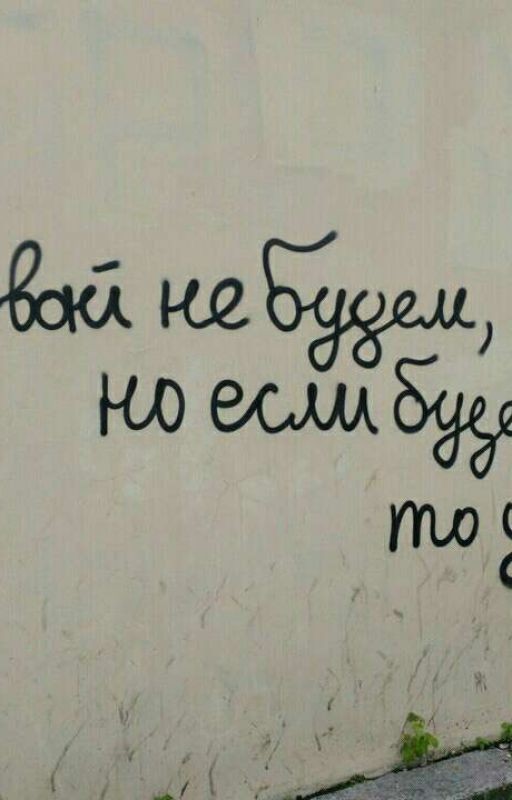 вай не будем,
но если буде
то д